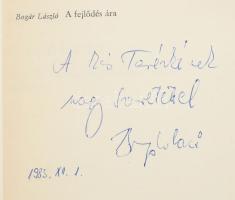 Bogár László A fejlődés ára
A Kis
nagy szeretettel
Bogár László
1983. XII. 1.